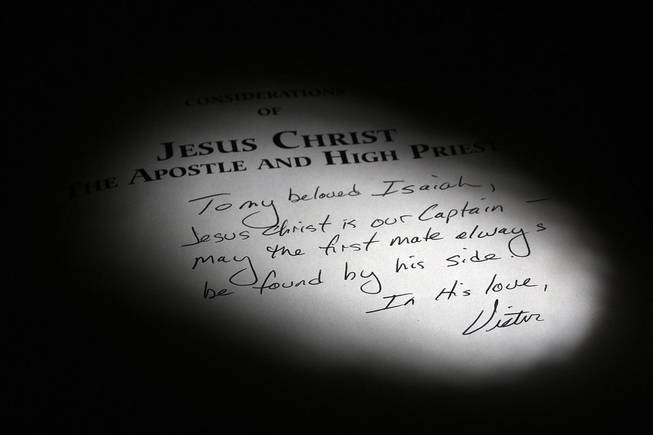 CONSIDERATIONS
OF
JESUS CHRIST
THE APOSTLE AND HIGH PRIEST
To my beloved Isaiah,
Jesus Christ is our Captain —
may the first mate always
be found by his side.
In His love,
Victor